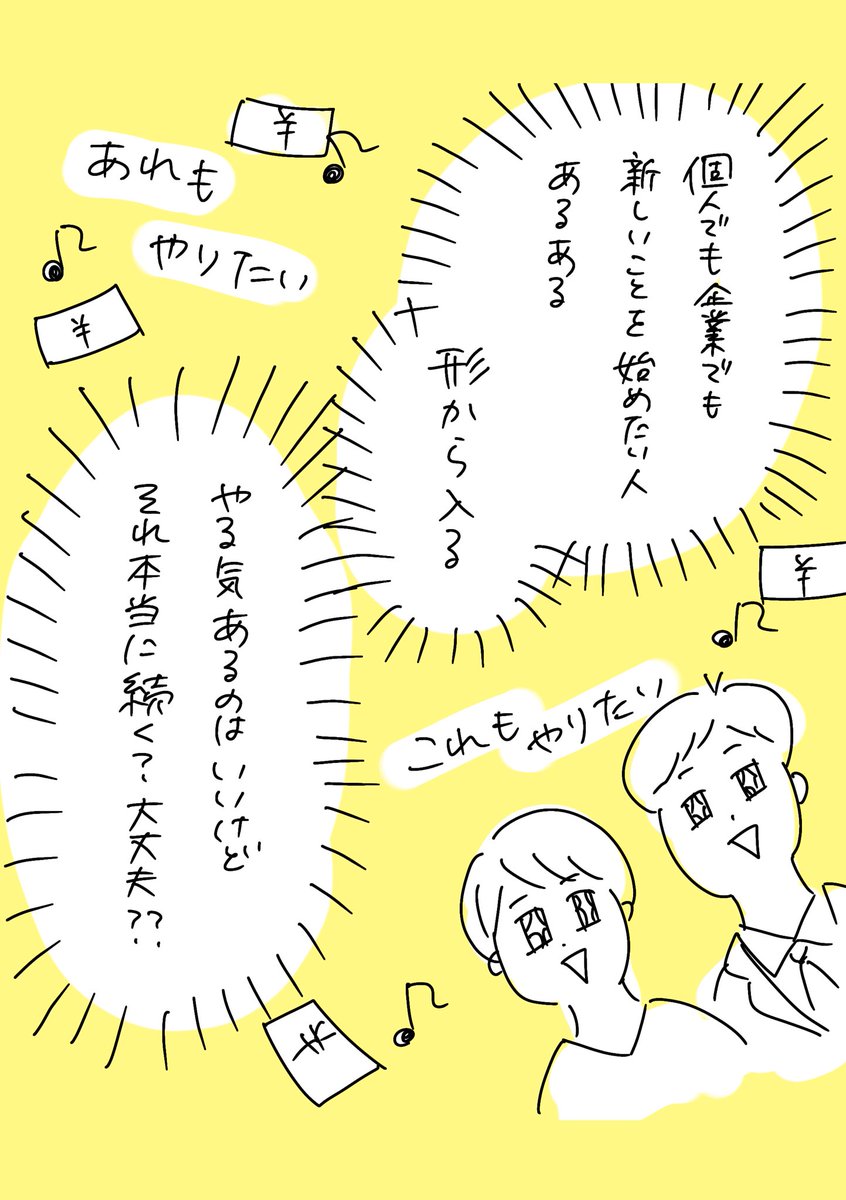 個人でも企業でも
新しいことを始めたい人
あるある
形から入る
あれも
やりたい
¥
¥
やる気あるのはいいけど
それ本当に続く?大丈夫??
¥
これもやりたい
¥